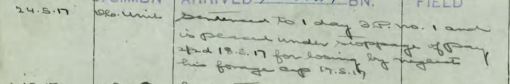 ARRIVED BN. FIELD
24.5.17 Sentenced to 1 day F.P. no. 1 and
is placed under stoppage of pay
18.5.17 for losing by neglect
his forage cap 17.5.17